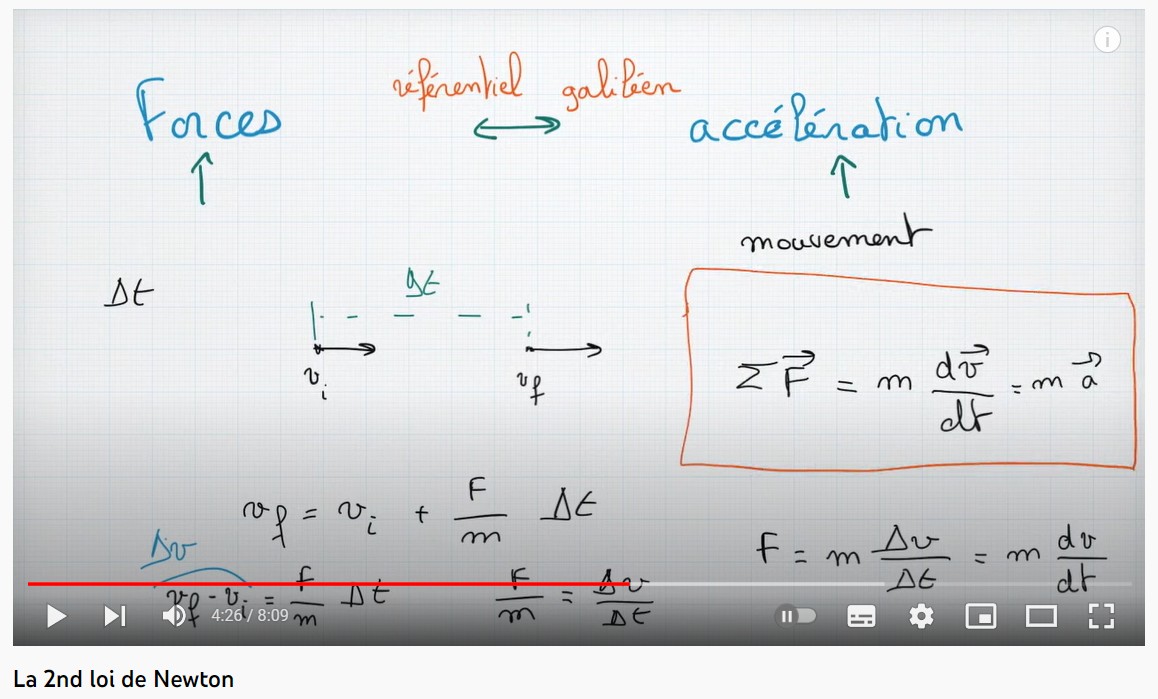 référentiel galiléen
Forces ⟷ accélération
↑ ↑
mouvement
Δt
Δt
v_i v_f
ΣF⃗ = m dv⃗/dt = m a⃗
v_f = v_i + F/m Δt
F = m Δv/Δt = m dv/dt
Δv
v_f - v_i = F/m Δt
F/m = Δv/Δt
4:26 / 8:09
La 2nd loi de Newton